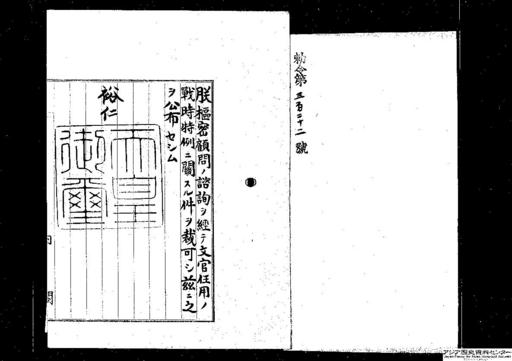 勅令第三百二十二號
朕樞密顧問ノ諮詢ヲ經テ文官任用ノ
戰時特例ニ關スル件ヲ裁可シ茲ニ之
ヲ公布セシム
裕仁
天皇
御璽
内閣
アジア歴史資料センター